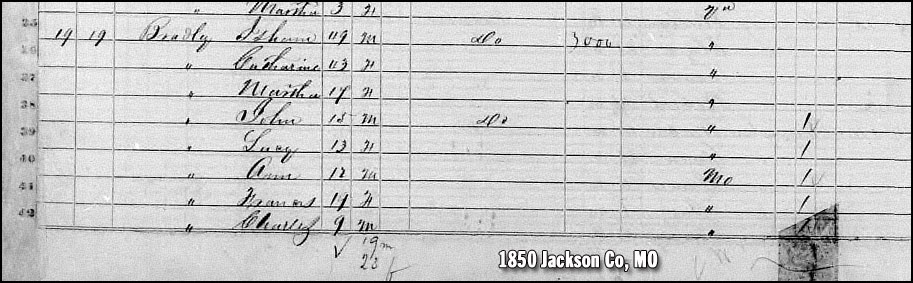 " Martha 3
35 19 19 Bradley Isham 49 M Do 3000 "
" Catharine 43 "
" Martha 17 "
38 " John 15 M Do " 1
39 " Lucy 13 " 1
40 " Ann 12 Mo 1
41 " Frances " 1
42 " Charles 9 M "
19 m
23 f
1850 Jackson Co, MO